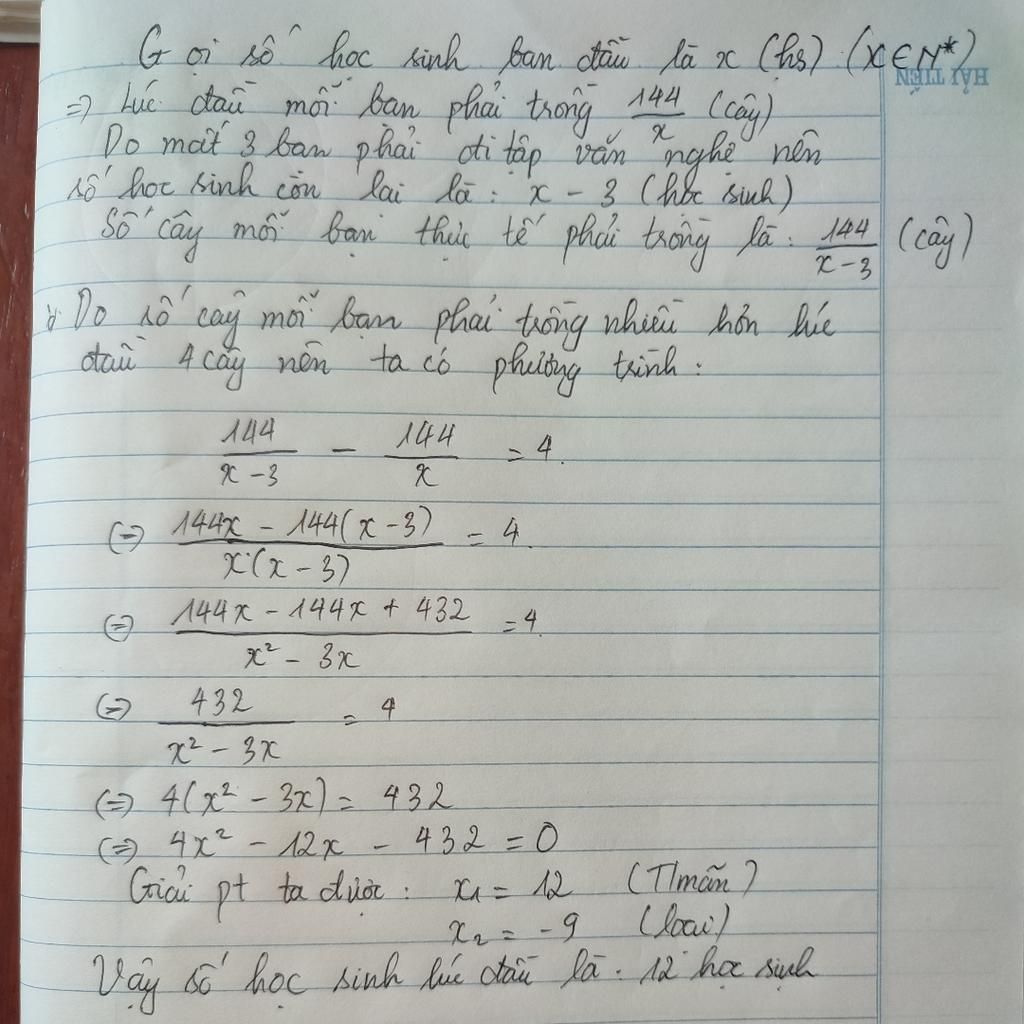 Gọi số học sinh ban đầu là x (hs) (x ∈ N*)
HẢI TIẾN
=> Lúc đầu mỗi bạn phải trồng 144/x (cây)
Do mất 3 bạn phải đi tập văn nghệ nên
số học sinh còn lại là: x - 3 (học sinh)
Số cây mỗi bạn thực tế phải trồng là: 144/(x-3) (cây)
Do số cây mỗi bạn phải trồng nhiều hơn lúc
đầu 4 cây nên ta có phương trình:
144/(x-3) - 144/x = 4.
(=) (144x - 144(x-3))/(x(x-3)) = 4.
(=) (144x - 144x + 432)/(x² - 3x) = 4.
(=) 432/(x² - 3x) = 4
(=) 4(x² - 3x) = 432
(=) 4x² - 12x - 432 = 0
Giải pt ta được: x₁ = 12 (T/mãn)
x₂ = -9 (loại)
Vậy số học sinh lúc đầu là: 12 học sinh